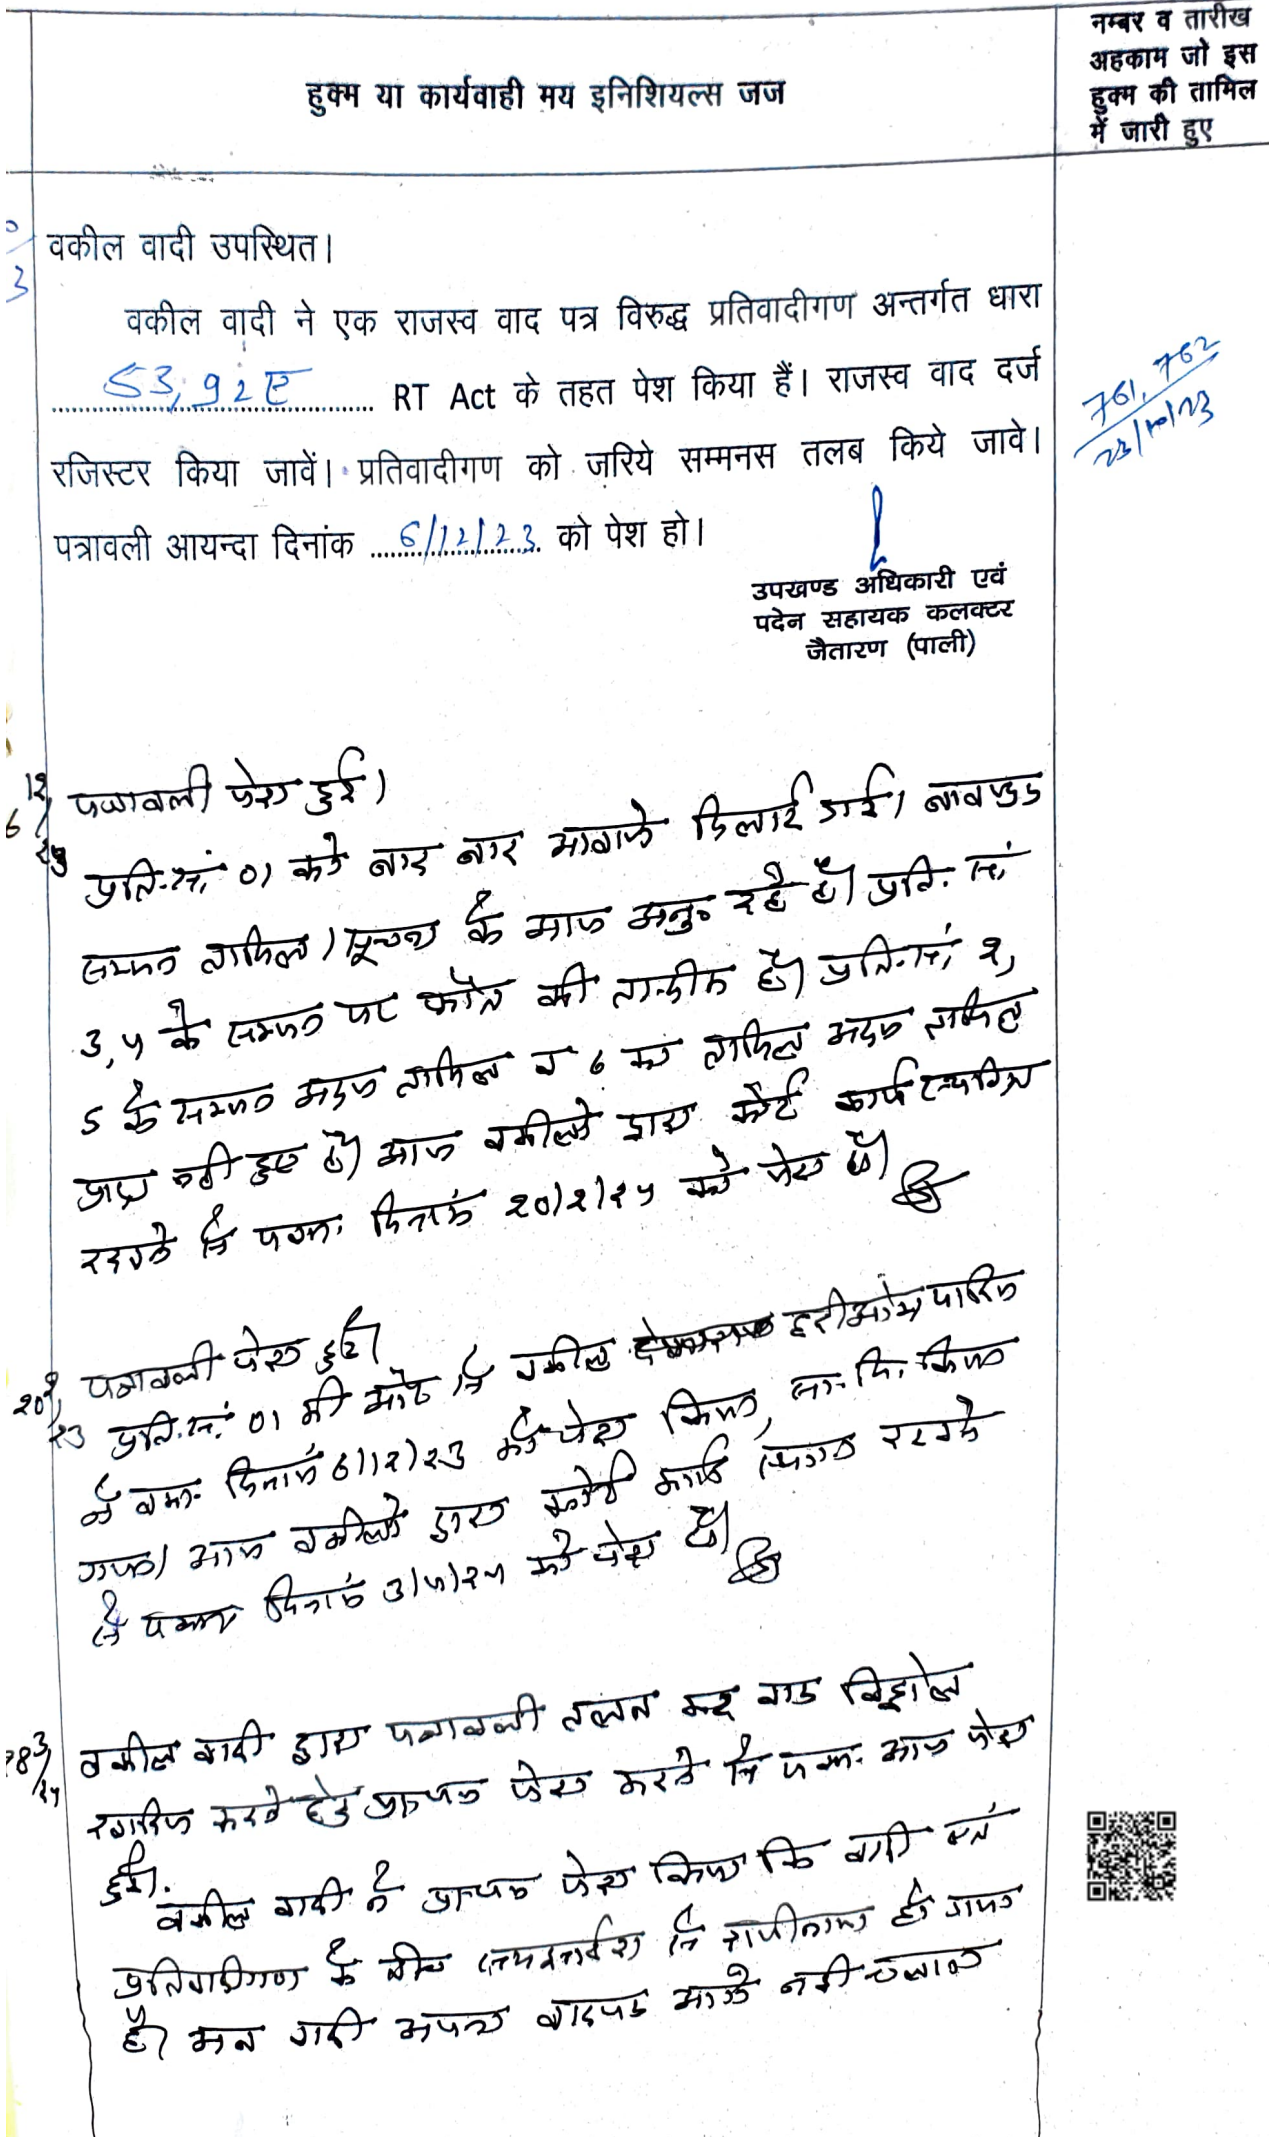 हुक्म या कार्यवाही मय इनिशियल्स जज
नम्बर व तारीख
अहकाम जो इस
हुक्म की तामिल
में जारी हुए
वकील वादी उपस्थित।
वकील वादी ने एक राजस्व वाद पत्र विरुद्ध प्रतिवादीगण अन्तर्गत धारा
53, 92ए RT Act के तहत पेश किया हैं। राजस्व वाद दर्ज
रजिस्टर किया जावें। प्रतिवादीगण को जरिये सम्मनस तलब किये जावे।
पत्रावली आयन्दा दिनांक 6/12/23 को पेश हो।
761, 762
23/10/23
उपखण्ड अधिकारी एवं
पदेन सहायक कलक्टर
जैतारण (पाली)
6/12/23
पत्रावली पेश हुई।
प्रति.सं. 01 को बार बार आवाजे दिलाई गई। बावजुद
सम्मन तामिल/सूचना के आज अनु० रहे है। प्रति. सं.
3, 4 के सम्मन पर फौत की तस्दीक है। प्रति.सं. 2,
5 के सम्मन अदम तामिल व 6 का तामिल अदम तामिल
प्राप्त नही हुए है। आज वकीलो द्वारा कोर्ट कार्य स्थगित
रखने से पत्रा. दिनांक 20/2/24 को पेश हो।
पत्रावली पेश हुई।
प्रति.सं. 01 की ओर से वकील हरीओम पारिक
ने वका. दिनांक 6/12/23 को पेश किया, सा. मि. किया
गया। आज वकीलो द्वारा कोर्ट कार्य स्थगित रखने
से पत्रा दिनांक 3/4/24 को पेश हो।
28/3/24
वकील वादी द्वारा पत्रावली तलब कर वाद विड्रोल
खारिज करने हेतु प्रा.पत्र पेश करने से पत्रा. आज पेश
हुई।
वकील वादी ने प्रा.पत्र पेश किया कि वादी एवं
प्रतिवादीगण के बीच समझाईश से राजीनामा हो गया
है। अब वादी अपना वादपत्र आगे नही चलाना